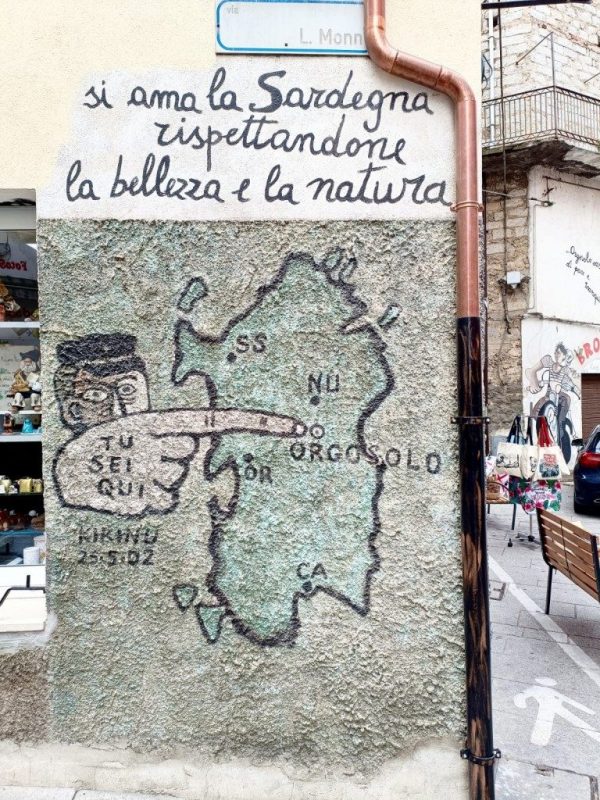 via
L. Monn
si ama la Sardegna
rispettandone
la bellezza e la natura
SS
NU
ORGOSOLO
OR
TU
SEI
QUI
KIKINU
25.5.02
CA